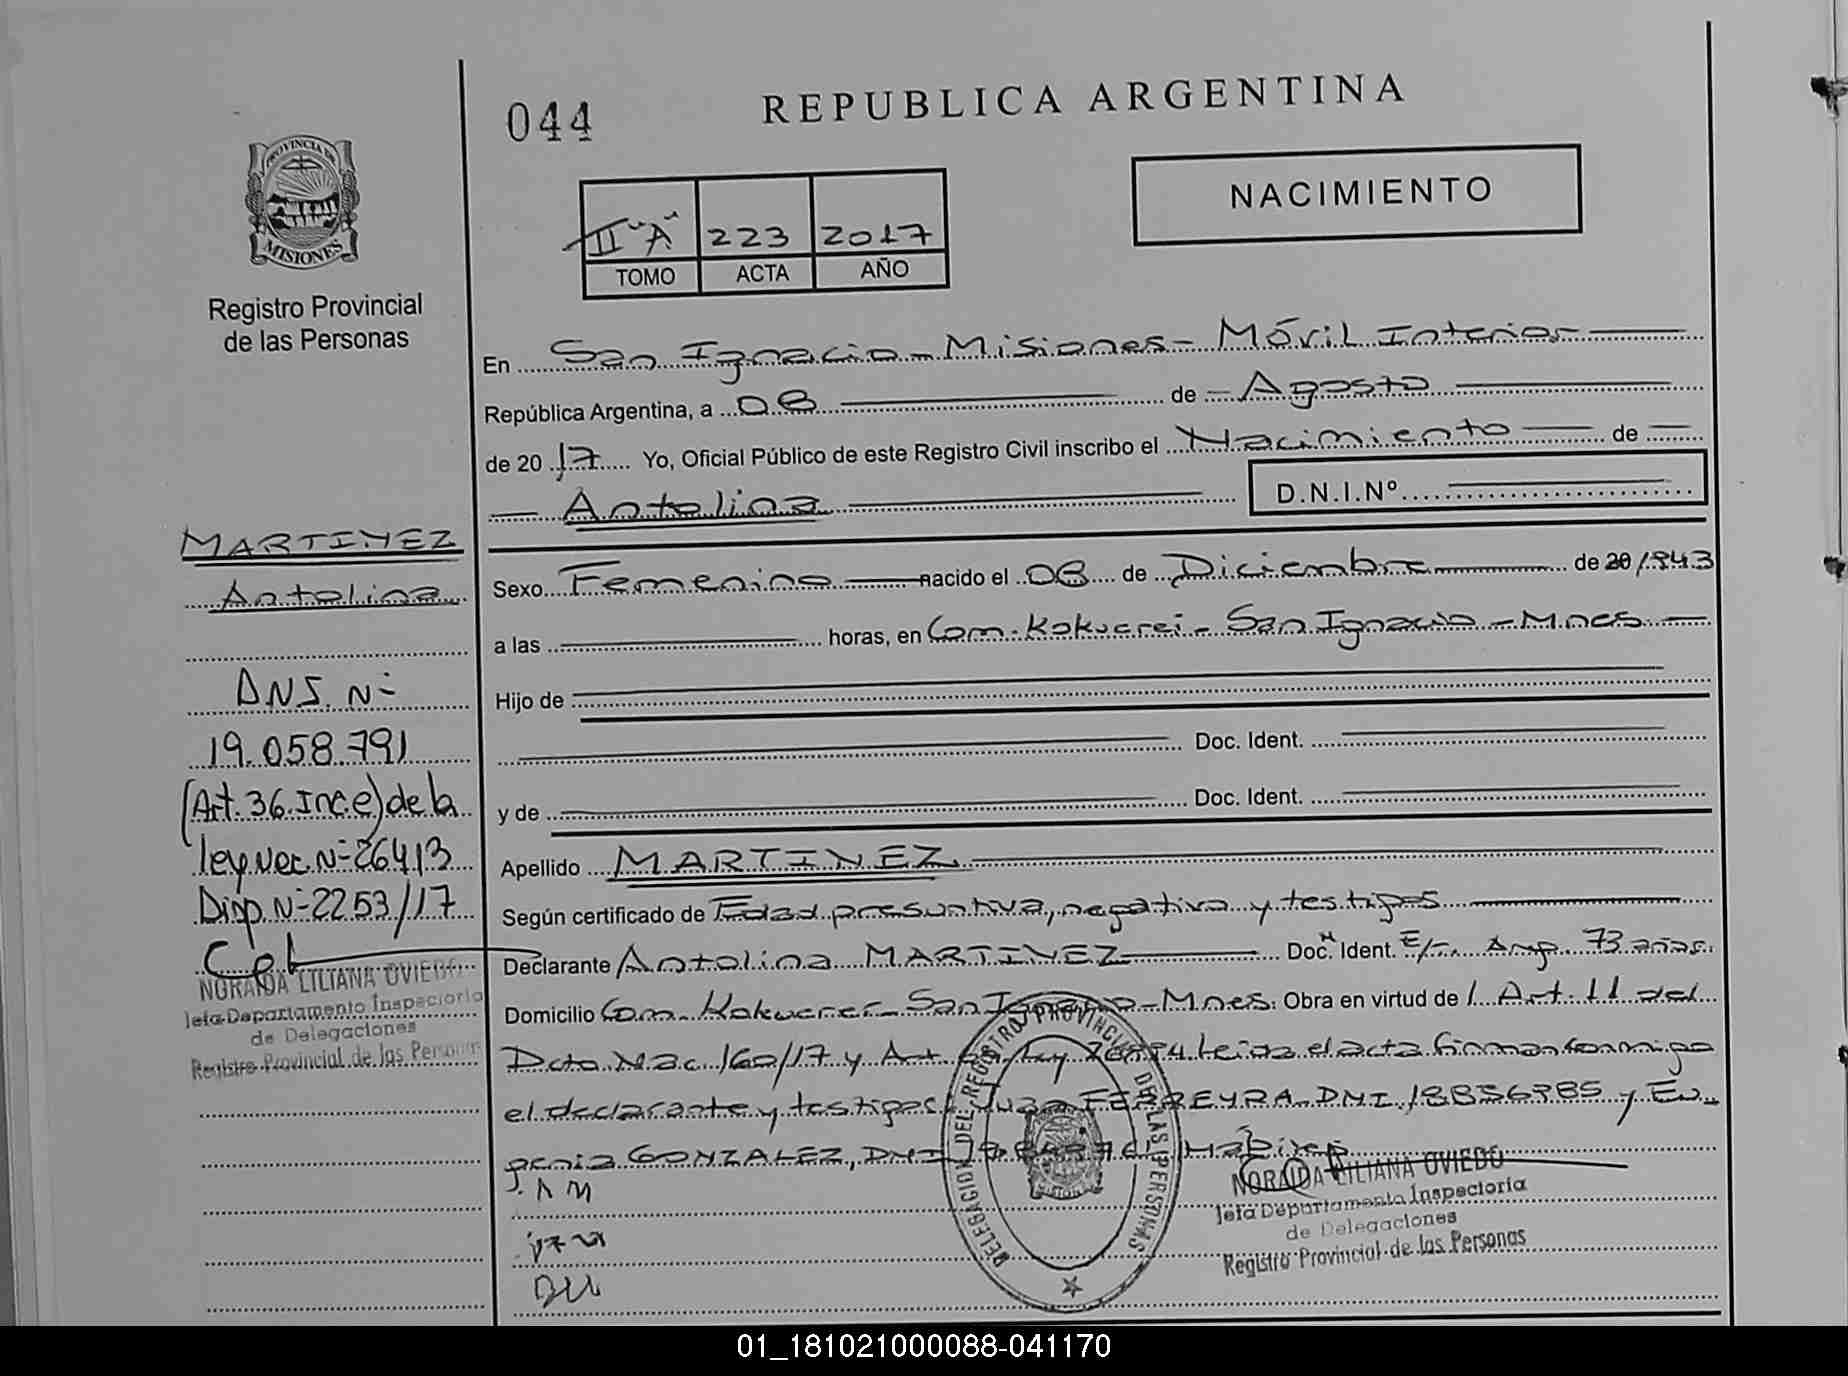 044
REPUBLICA ARGENTINA
PROVINCIA DE
MISIONES
Registro Provincial
de las Personas
NACIMIENTO
II "A" 223 2017
TOMO ACTA AÑO
En San Ignacio - Misiones - Móvil Interior
República Argentina, a 08 de Agosto
de 2017 Yo, Oficial Público de este Registro Civil inscribo el Nacimiento de
Antolina D.N.I.Nº
MARTINEZ
Antolina
DNI. Nº
19.058.791
(Art. 36. Inc. e) de la
ley Nac. Nº 26413
Disp. Nº 2253/17
NORAIDA LILIANA OVIEDO
Jefa Departamento Inspectoría
de Delegaciones
Registro Provincial de las Personas
Sexo Femenino nacido el 08 de Diciembre de 20 1943
a las horas, en Com. Kokuerei - San Ignacio - Mnes
Hijo de
Doc. Ident.
y de Doc. Ident.
Apellido MARTINEZ
Según certificado de Edad presuntiva, negativa y testigos
Declarante Antolina MARTINEZ Doc. Ident. Arg. 73 años.
Domicilio Com. Kokuerei - San Ignacio - Mnes. Obra en virtud de Art. 11 del
Dcto Nac. 160/17 y Art. leida el acta firman conmigo
el declarante y testigos: FERREYRA DNI y Eu
genia GONZALEZ, DNI
DELEGACION DEL REGISTRO PROVINCIAL DE LAS PERSONAS
NORAIDA LILIANA OVIEDO
Jefa Departamento Inspectoría
de Delegaciones
Registro Provincial de las Personas
01_181021000088-041170